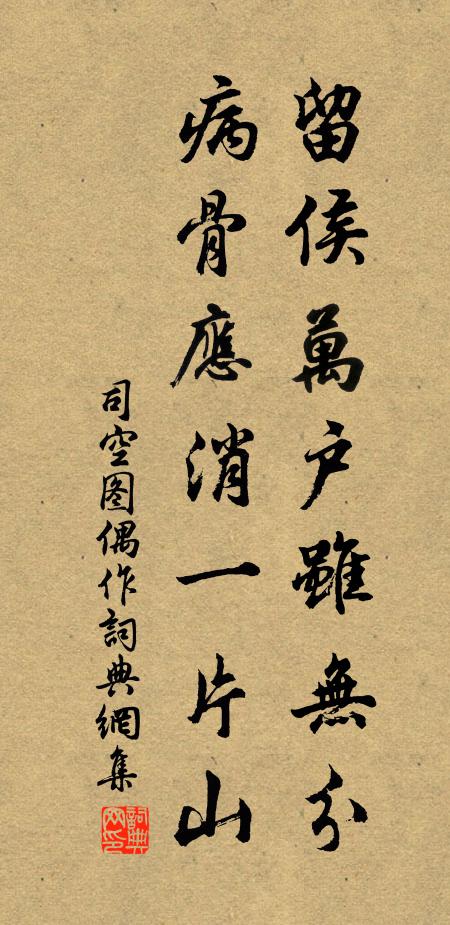 留侯萬户雖無分
病骨應消一片山
司空图偶作詞典網集
詞典
网印